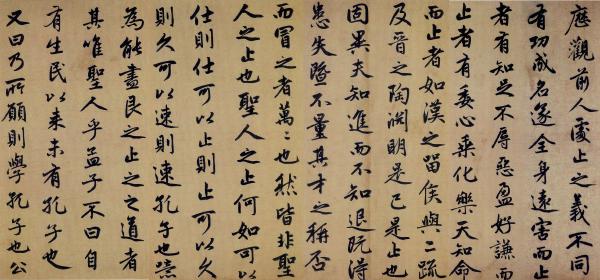 歷觀前人處止之義不同
有功成名遂全身遠害而
者有知足不辱惡盈好謙而
止者有委心乘化樂天知命
而止者如漢之留侯與二疏
及晉之陶淵明是已是止也
固異夫知進而不知退既得
患失不量其才之稱否
而冒之者萬〻也然皆非聖
人之止也聖人之止何如可以
仕則仕可以止則止可以久
則久可以速則速孔子也嘗
為能盡艮之止之之道者
其唯聖人乎孟子不曰自
有生民以來未有孔子也
又曰乃所願則學孔子也公